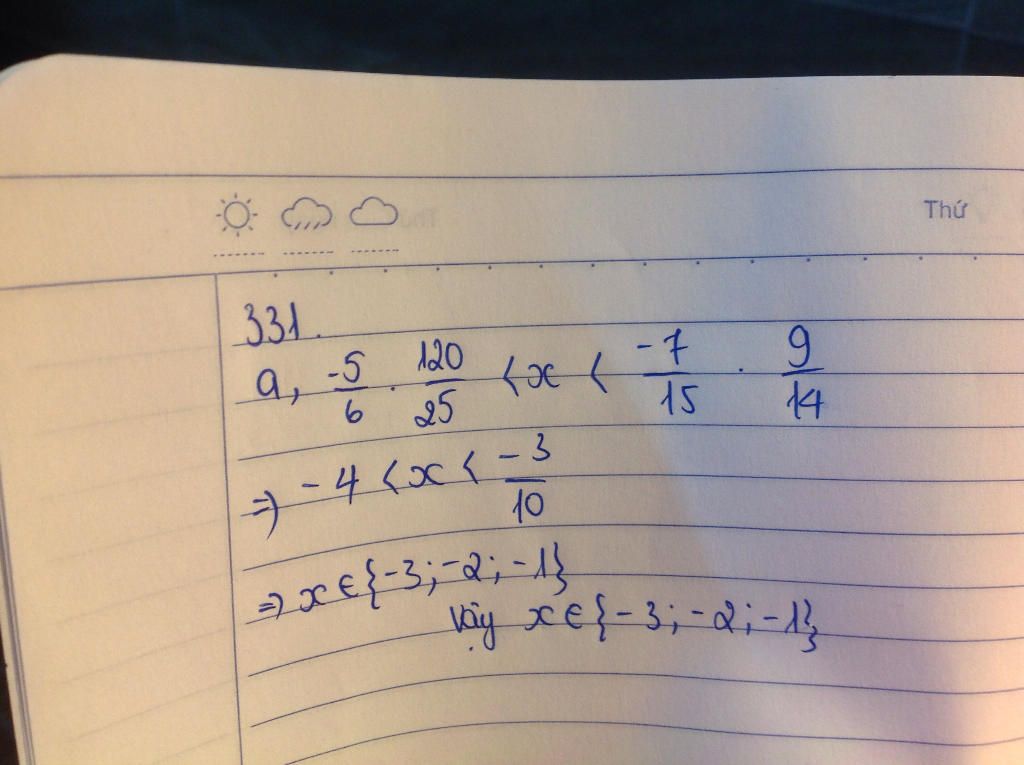 Thứ
331.
a, -5/6 . 120/25 < x < -7/15 . 9/14
=> -4 < x < -3/10
=> x ∈ {-3; -2; -1}
Vậy x ∈ {-3; -2; -1}